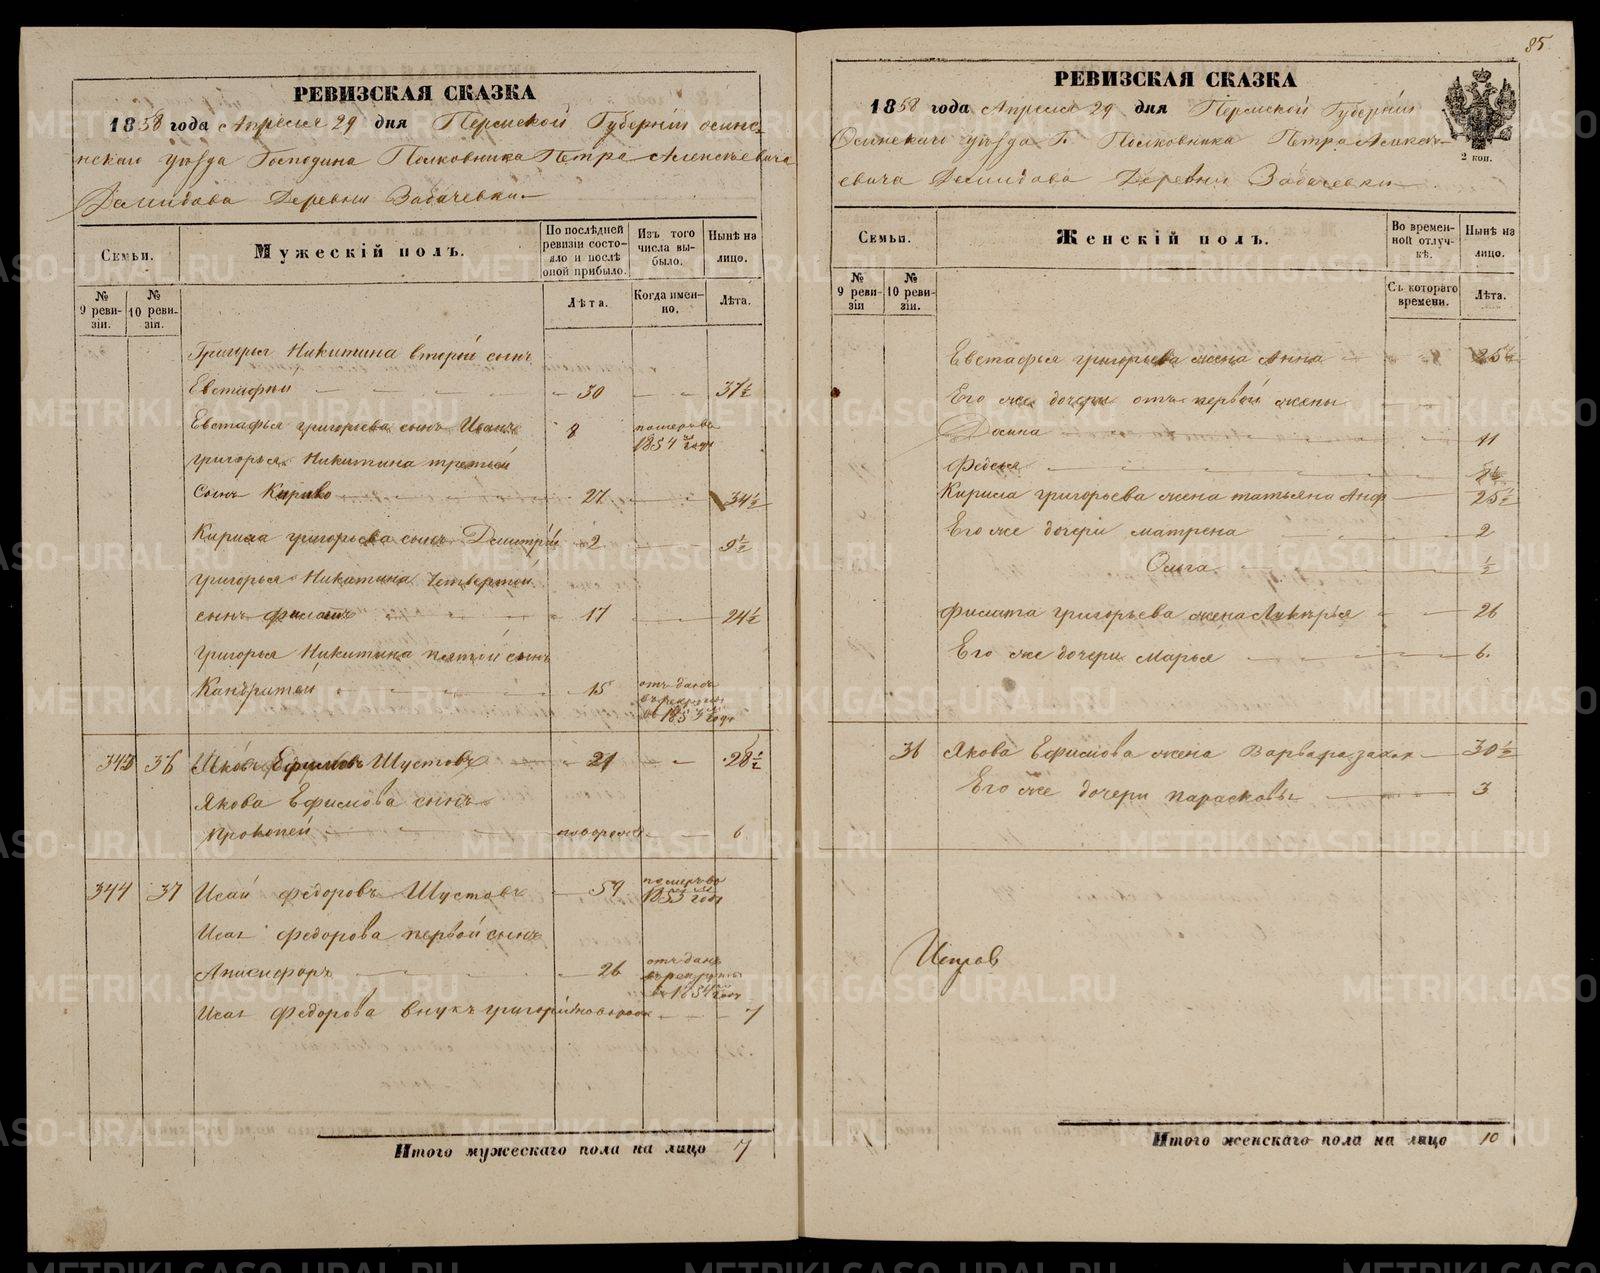 85
РЕВИЗСКАЯ СКАЗКА
1858 года Апреля 29 дня Пермской Губернiи осинс-
нскаго уѣзда Господина Полковника Петра Алексѣевича
Демидова Деревни Забачевки
Семьи.
Мужескiй полъ.
По послѣдней ревизiи состояло и послѣ оной прибыло.
Изъ того числа выбыло.
Нынѣ на лицо.
№ 9 ревизiи.
№ 10 ревизiи.
Лѣта.
Когда именно.
Лѣта.
Григорья Никитина вторый сынъ
Евстафiи 30 37½
Евстафья григорьева сынъ Иванъ 8 померъ въ 1854 годе
григорья Никитина третьей
сынъ Кирило 27 34½
Кирила григорьева сынъ Дмитрiй 2 9½
григорья Никитина четвертой
сынъ филатъ 17 24½
григорья Никитина пятой сынъ
Кандратей 15 отъ данъ въ рекруты въ 1853 годе
343 36 Яковъ Ефимовъ Шустовъ 21 28½
Якова Ефимова сынъ
Прокопей новорож 6
344 37 Исай федоровъ Шустовъ 59 померъ во 1853 годе
Исая федорова первой сынъ
Анисифоръ 26 отъ данъ въ рекруты в 1854 годе
Исая Федорова внукъ григорiй новорож 7
Итого мужескаго пола на лицо 7
РЕВИЗСКАЯ СКАЗКА
1858 года Апреля 29 дня Пермской Губернiи
Осинскаго уѣзда Г. Полковника Петра Алексѣ-
евича Демидова Деревни Забачевки
2 коп.
Семьи.
Женскiй полъ.
Во временной отлучкѣ.
Нынѣ на лицо.
№ 9 ревизiи
№ 10 ревизiи.
Съ котораго времени.
Лѣта.
Евстафья григорьева жена Анна 25½
Его же дочери отъ первой жены
11
Федосья
Кирила григорьева жена татьяна 25½
Его же дочери матрена 2
Ольга ½
филата григорьева жена Лукерья 26
Его же дочери Марья 6
36 Якова Ефимова жена Варвара захар 30½
Его же дочери парасковья 3
Итого женскаго пола на лицо 10
METRIKI.GASO-URAL.RU